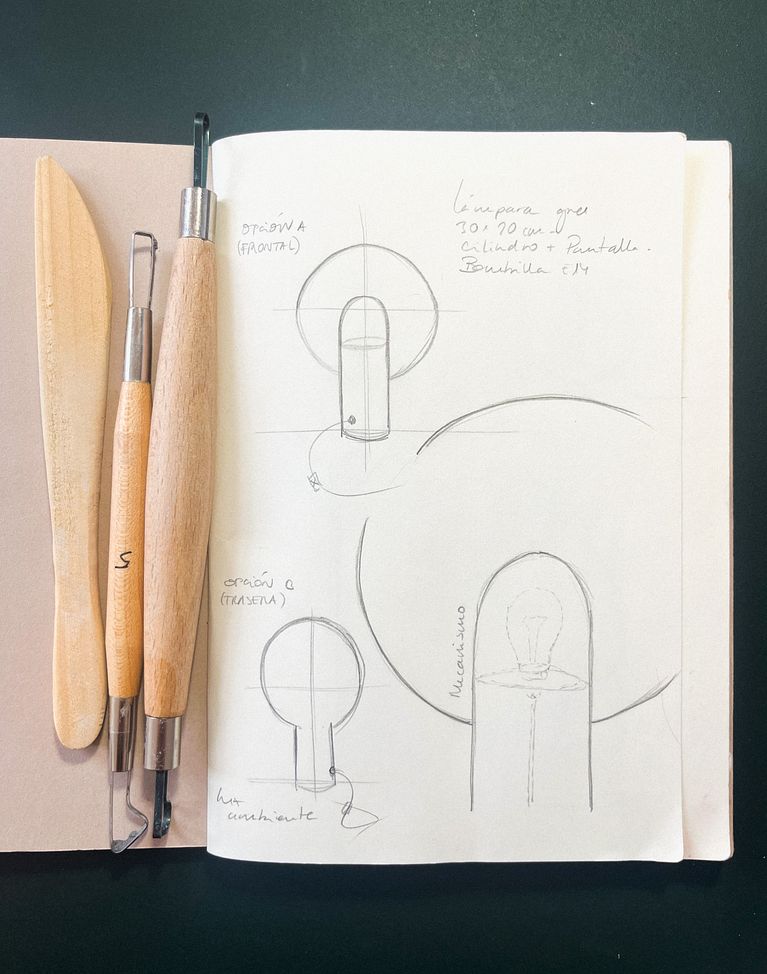 OPCIÓN A
(FRONTAL)
Lámpara gres
30 x 20 cm
cilindro + Pantalla.
Bombilla E14
OPCIÓN B
(TRASERA)
Mecanismo
luz
ambiente
5